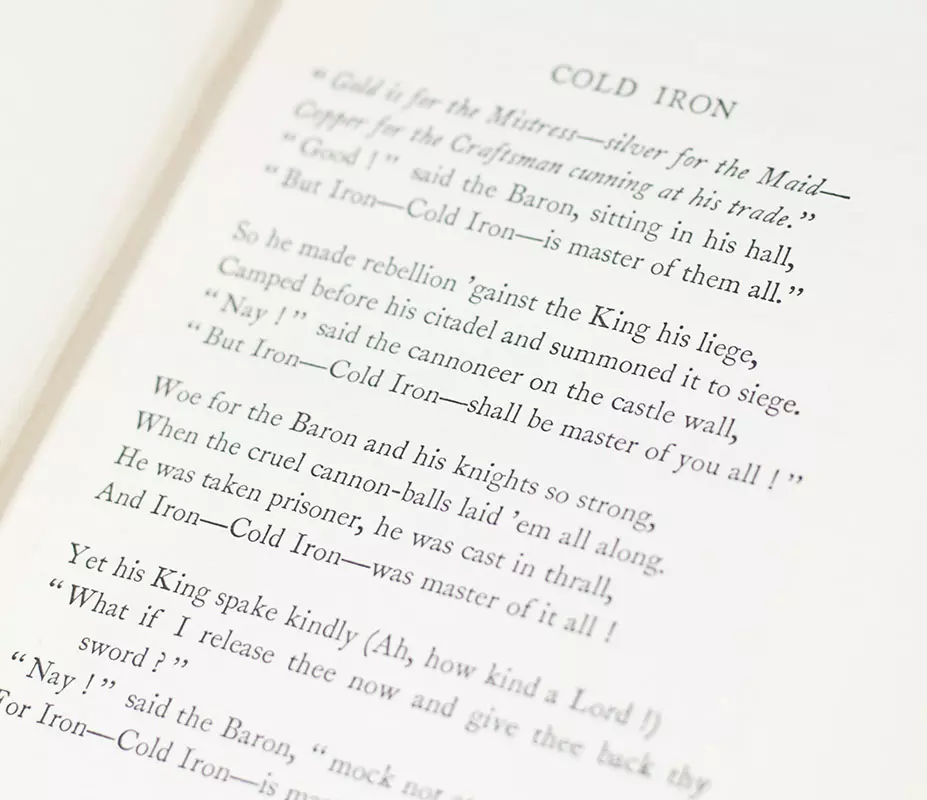 COLD IRON
“Gold is for the Mistress—silver for the Maid—
Copper for the Craftsman cunning at his trade.”
“Good !” said the Baron, sitting in his hall,
“But Iron—Cold Iron—is master of them all.”
So he made rebellion ’gainst the King his liege,
Camped before his citadel and summoned it to siege.
“Nay !” said the cannoneer on the castle wall,
“But Iron—Cold Iron—shall be master of you all !”
Woe for the Baron and his knights so strong,
When the cruel cannon-balls laid ’em all along.
He was taken prisoner, he was cast in thrall,
And Iron—Cold Iron—was master of it all !
Yet his King spake kindly (Ah, how kind a Lord !)
“What if I release thee now and give thee back thy
sword ?”
“Nay !” said the Baron, “mock not
For Iron—Cold Iron—is